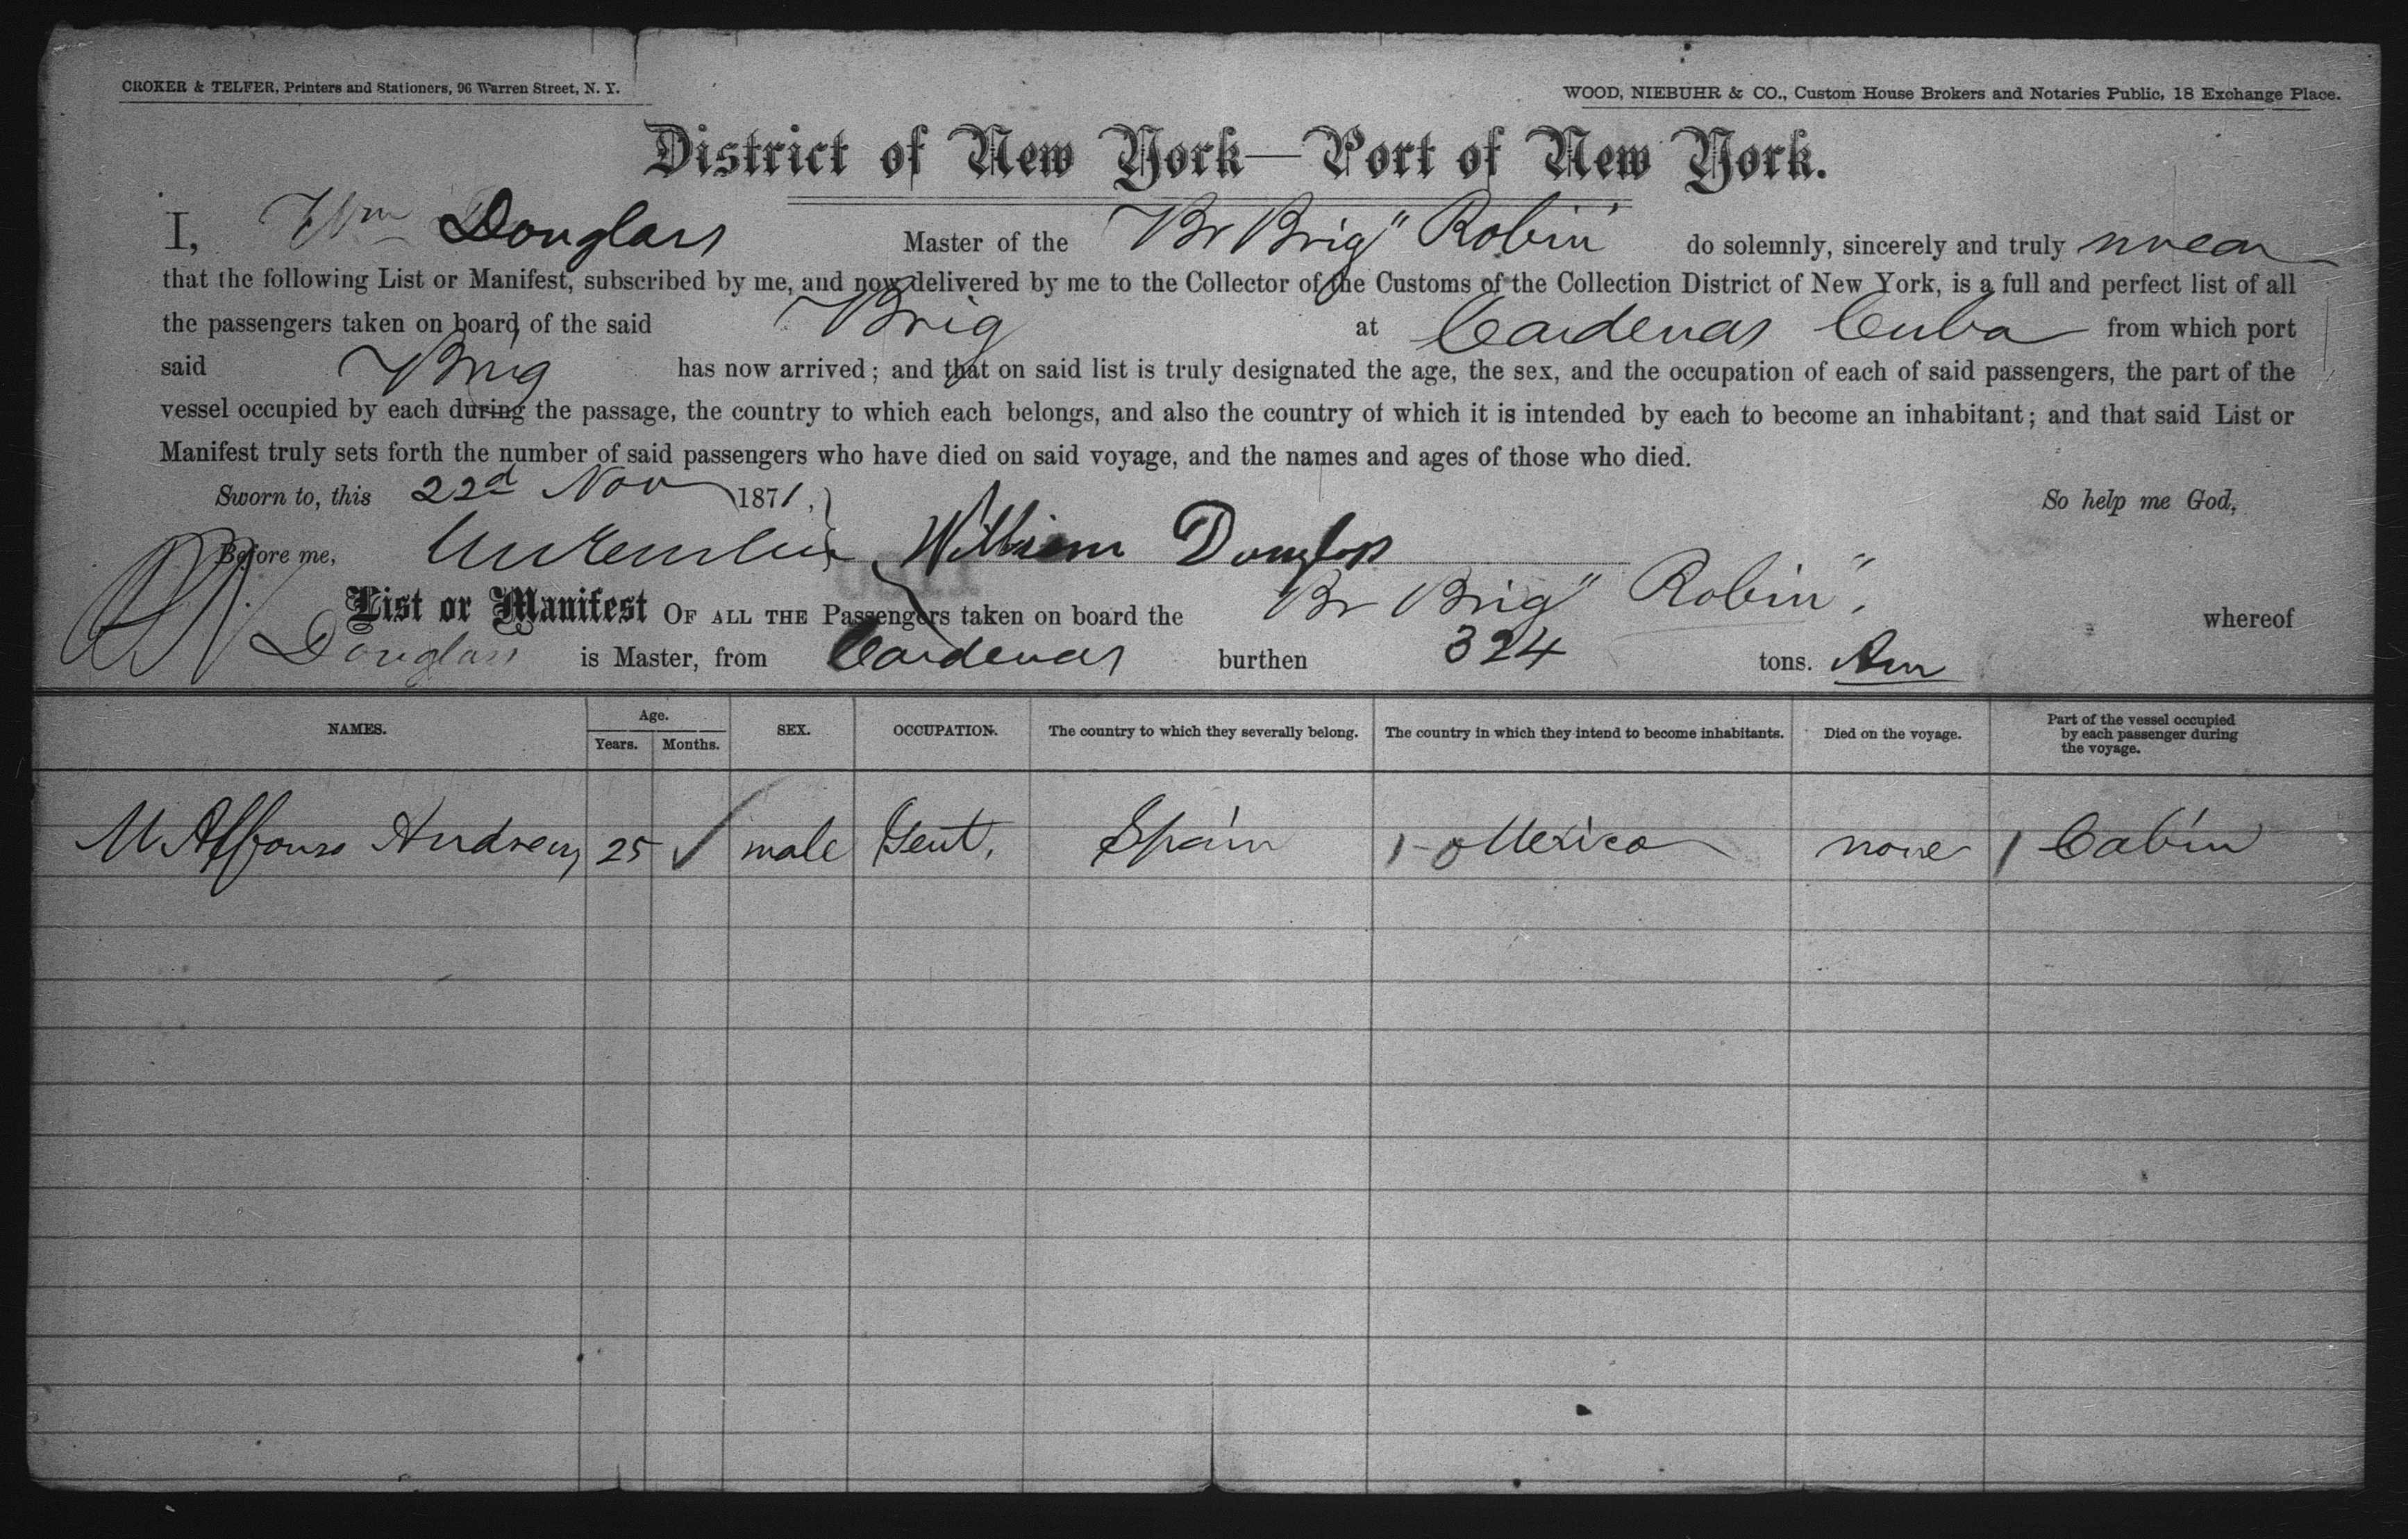 CROKER & TELFER, Printers and Stationers, 96 Warren Street, N. Y.
WOOD, NIEBUHR & CO., Custom House Brokers and Notaries Public, 18 Exchange Place.
District of New York—Port of New York.
I, Wm Douglass Master of the Br Brig "Robin" do solemnly, sincerely and truly swear
that the following List or Manifest, subscribed by me, and now delivered by me to the Collector of the Customs of the Collection District of New York, is a full and perfect list of all
the passengers taken on board of the said Brig at Cardenas Cuba from which port
said Brig has now arrived; and that on said list is truly designated the age, the sex, and the occupation of each of said passengers, the part of the
vessel occupied by each during the passage, the country to which each belongs, and also the country of which it is intended by each to become an inhabitant; and that said List or
Manifest truly sets forth the number of said passengers who have died on said voyage, and the names and ages of those who died.
Sworn to, this 22d Nov 1871, So help me God,
Before me, William Douglass
List or Manifest OF ALL THE Passengers taken on board the Br Brig "Robin". whereof
Douglass is Master, from Cardenas burthen 324 tons.
NAMES. Age. Years. Months. SEX. OCCUPATION. The country to which they severally belong. The country in which they intend to become inhabitants. Died on the voyage. Part of the vessel occupied by each passenger during the voyage.
M Alfonso Andreu 25 ✓ male Gent. Spain 1 Mexico none 1 Cabin